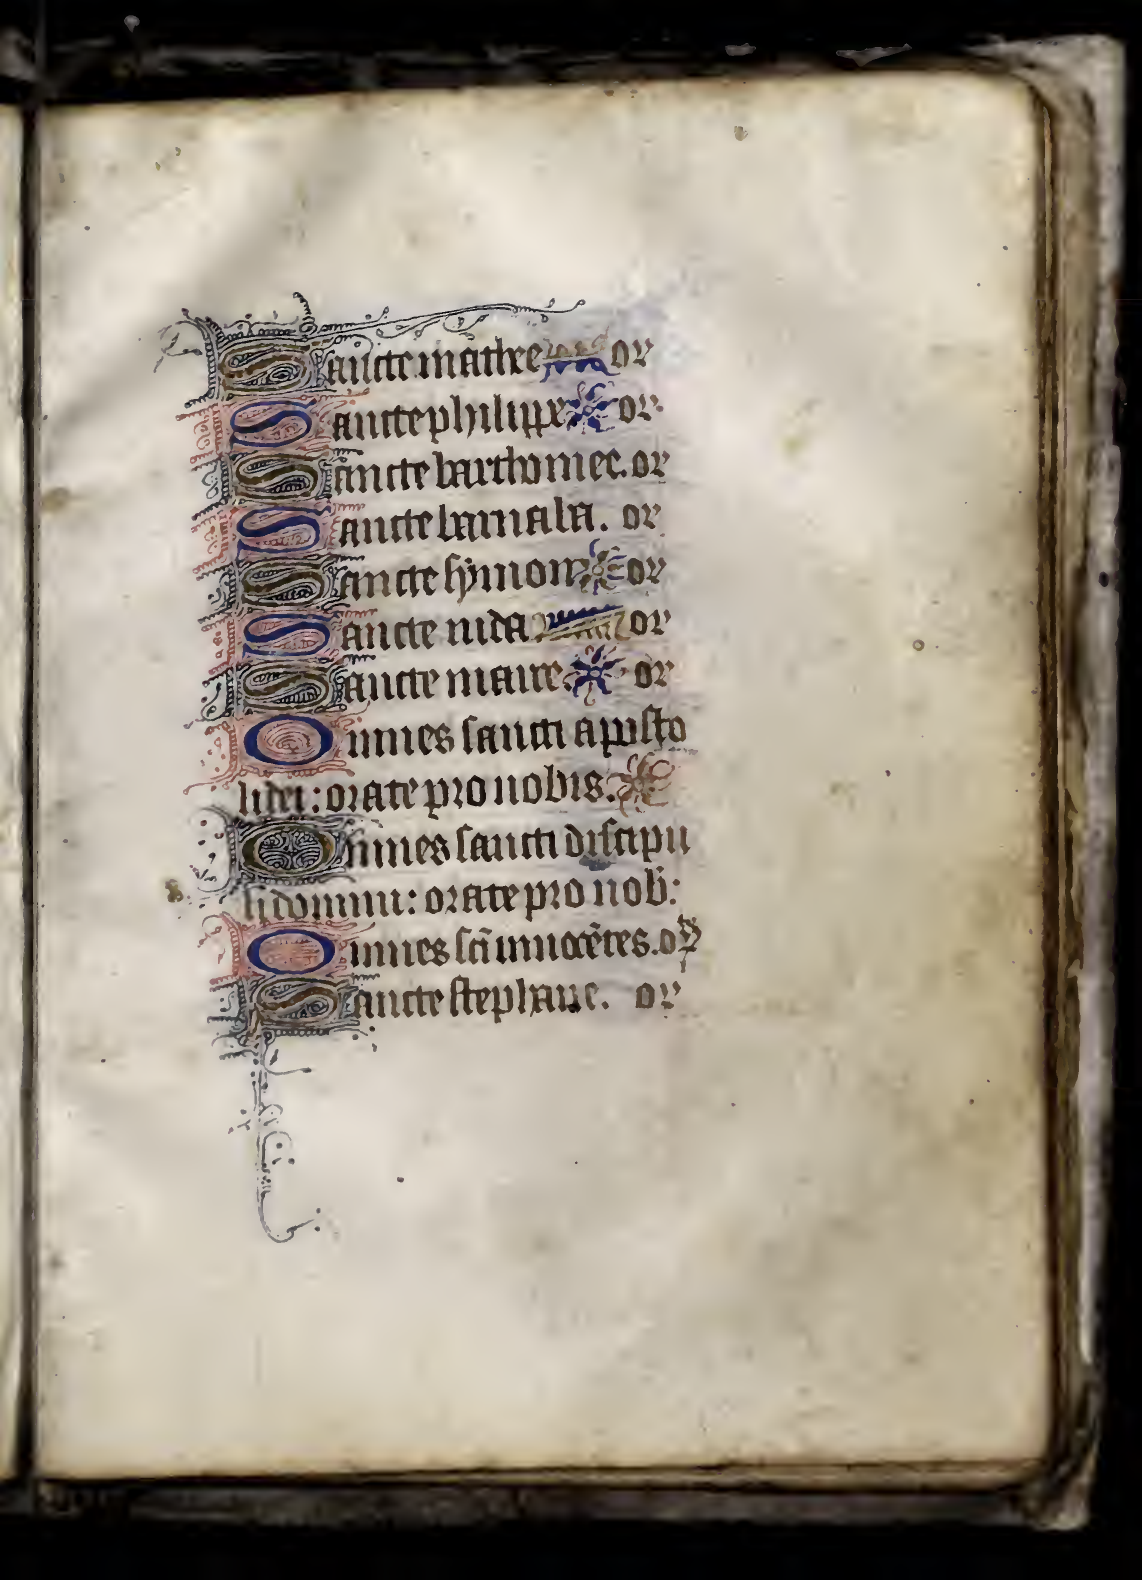 Sancte mathee or
Sancte philippe or
Sancte bartholmee. or
Sancte barnaba. or
Sancte symon or
Sancte iuda or
Sancte marce. or
Omnes sancti aposto
li dei: orate pro nobis.
Omnes sancti discipu
li domini: orate pro nob:
Omnes sc̄i innocētes. or
Sancte stephane. or